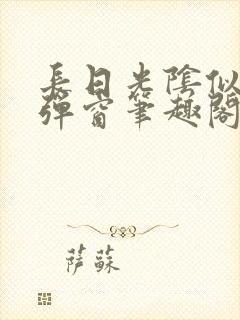 長日光陰似
彈窗筆趣閣
薩蘇